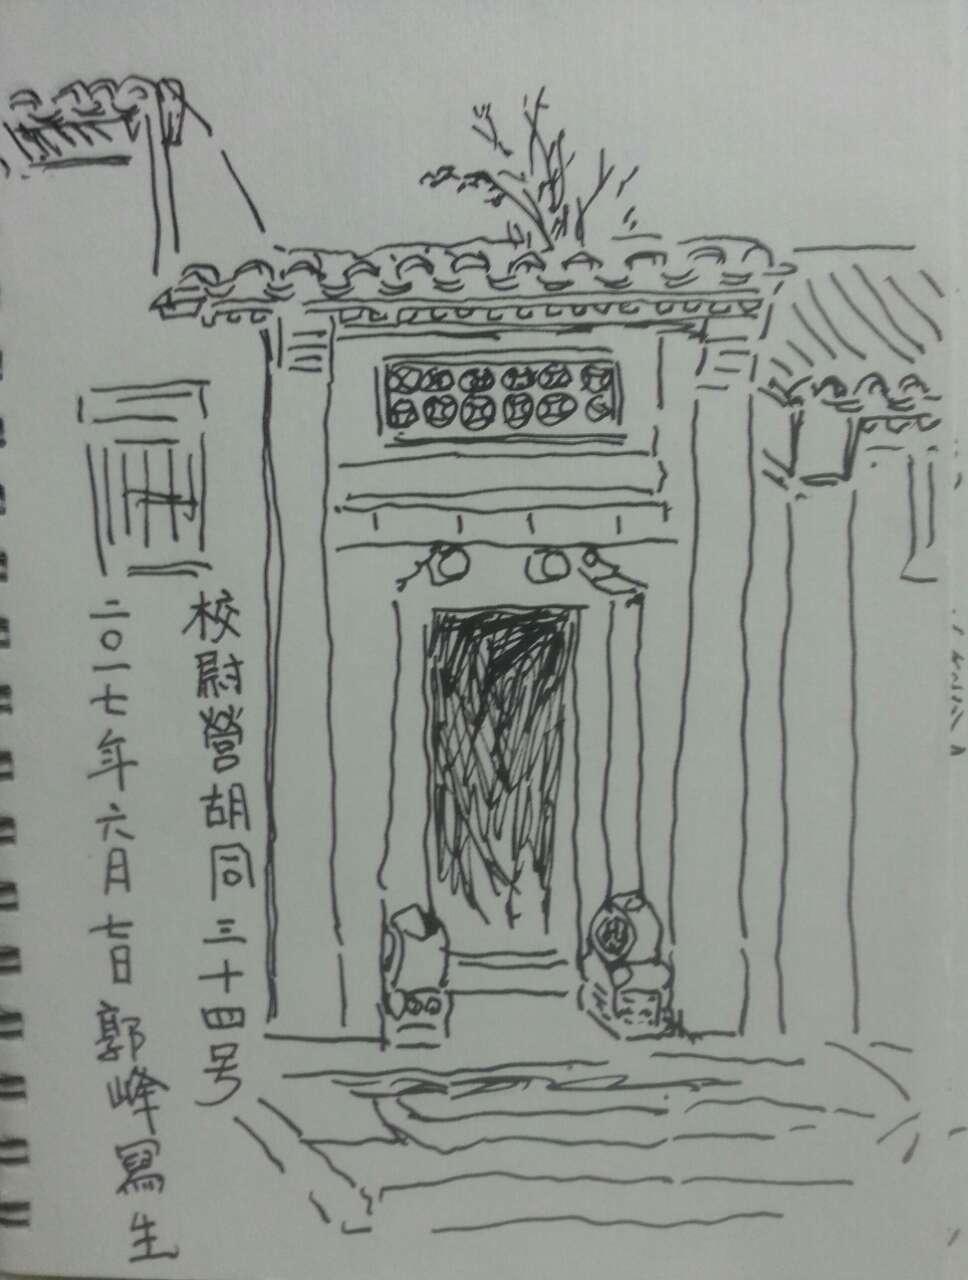 校尉營胡同三十四号
二〇一七年六月七日郭峰寫生